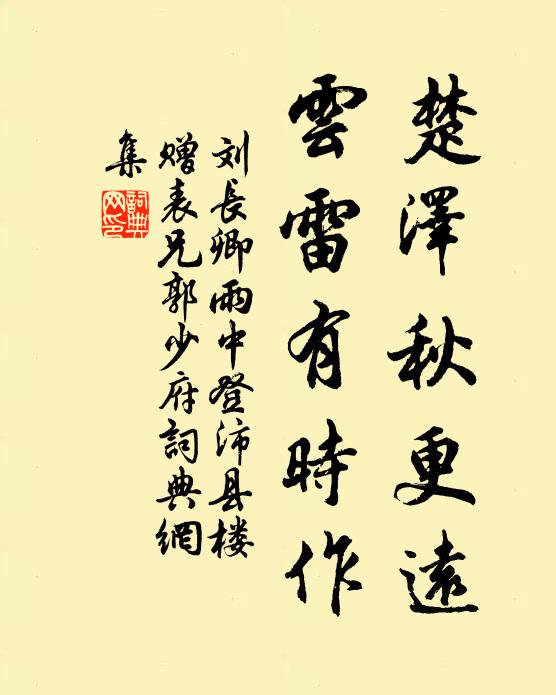 楚澤秋更遠
雲雷有時作
刘長卿雨中登沛县楼
赠表兄郭少府詞典網
集
詞典
网印